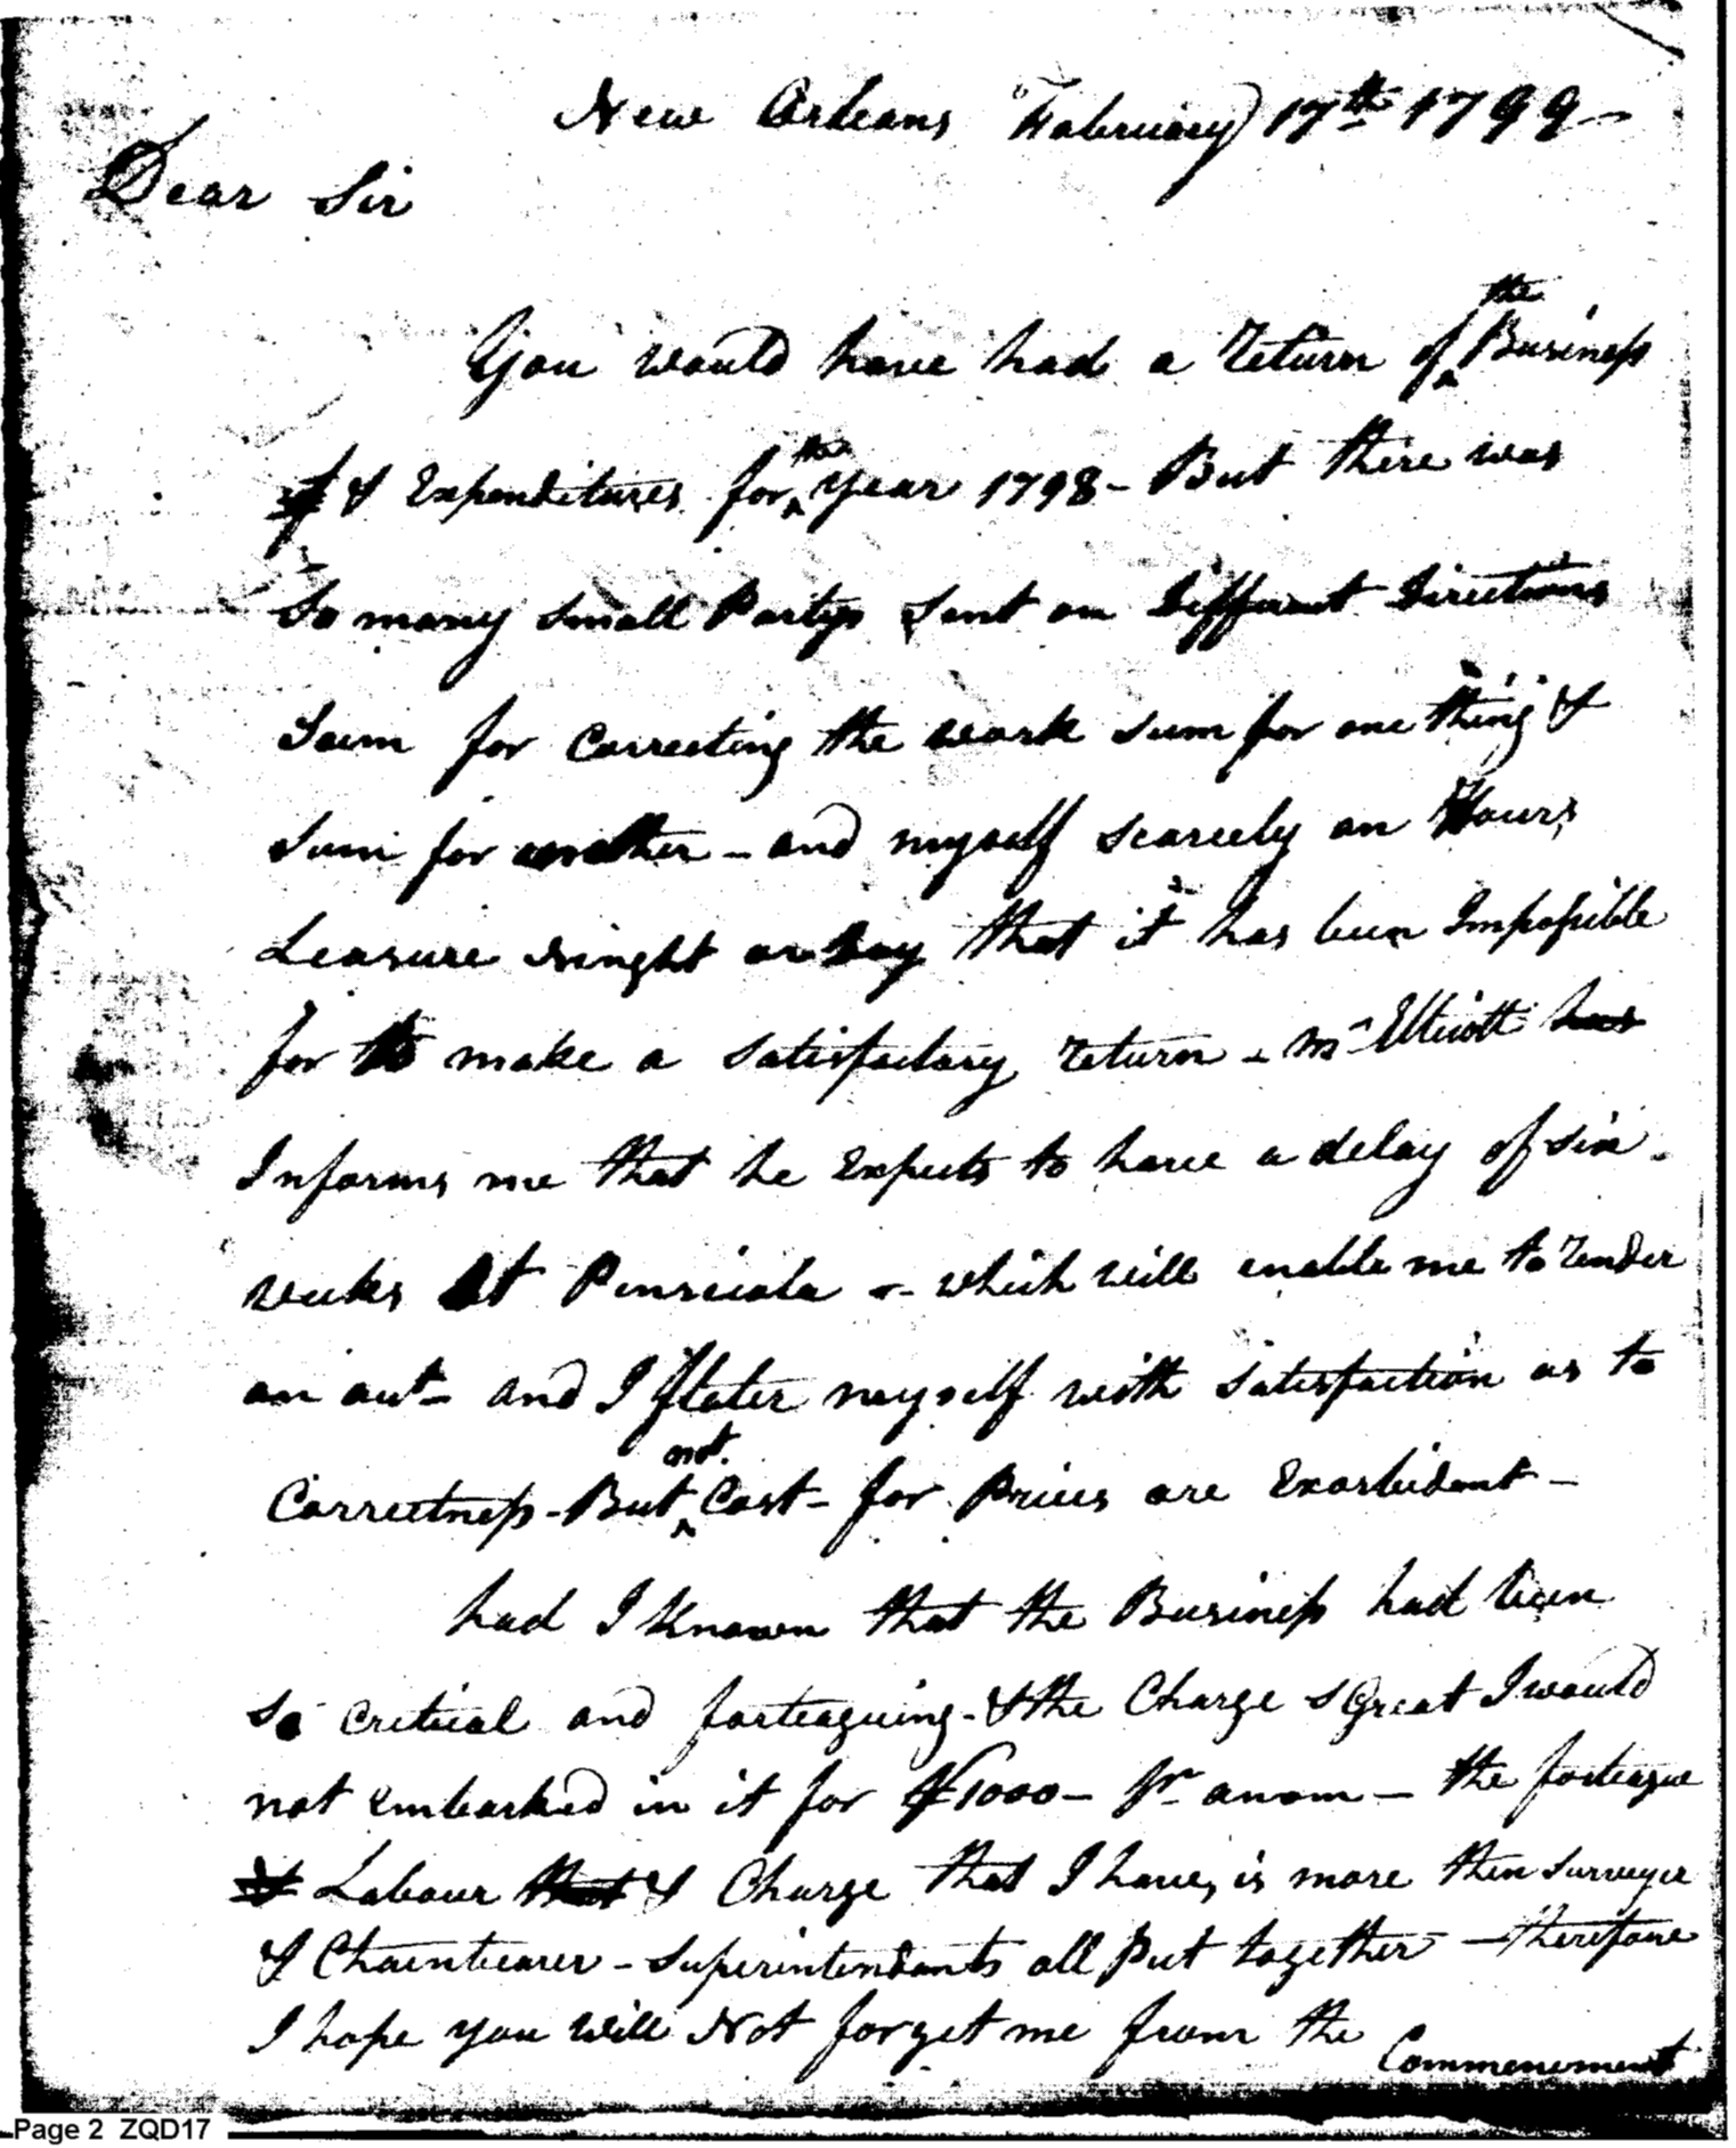 New Orleans February 17th 1799 -
Dear Sir
You would have had a return of the Business
& Expenditures for the year 1798 - But there was
So many Small Partys Sent on Different Directions
Sum for Correcting the work Sum for one thing &
Sum for another - and myself Scarcely an Hours
Leasure Ninght or Day that it has been Impossible
for to make a Satisfactory return - Mr Ellicott has
Informs me that he Expects to have a delay of six
weeks At Penscicola - which will enable me to render
an act - and I flater myself with Satisfaction as to
Correctness - But not Cost - for Prices are Exorbidant -
had I Known that the Business had been
So Critical and forteaguing - & the Charge So Great I would
not embarked in it for $1000 - pr anom - the forteague
& Labour that & Charge that I have, is more then Surveyer
& Chainbearer - Superintendants all Put together - therefore
I hope you will Not forget me from the
Commencement
Page 2 ZQD17